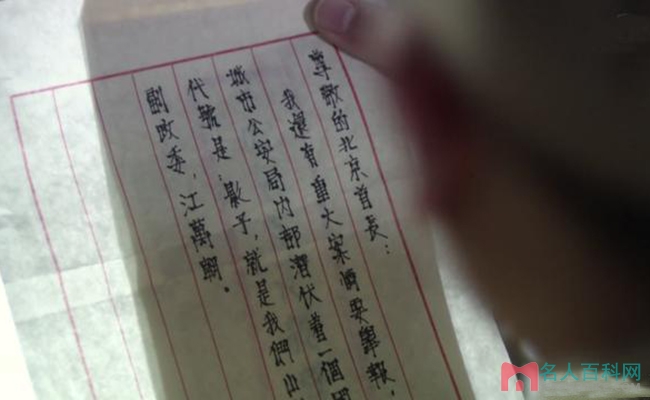 尊敬的北京首長：
我還有重大案情要舉報，
城市公安局内部潛伏着一個
代號是：影子，就是我們
副政委，江萬朝。
名人百科网